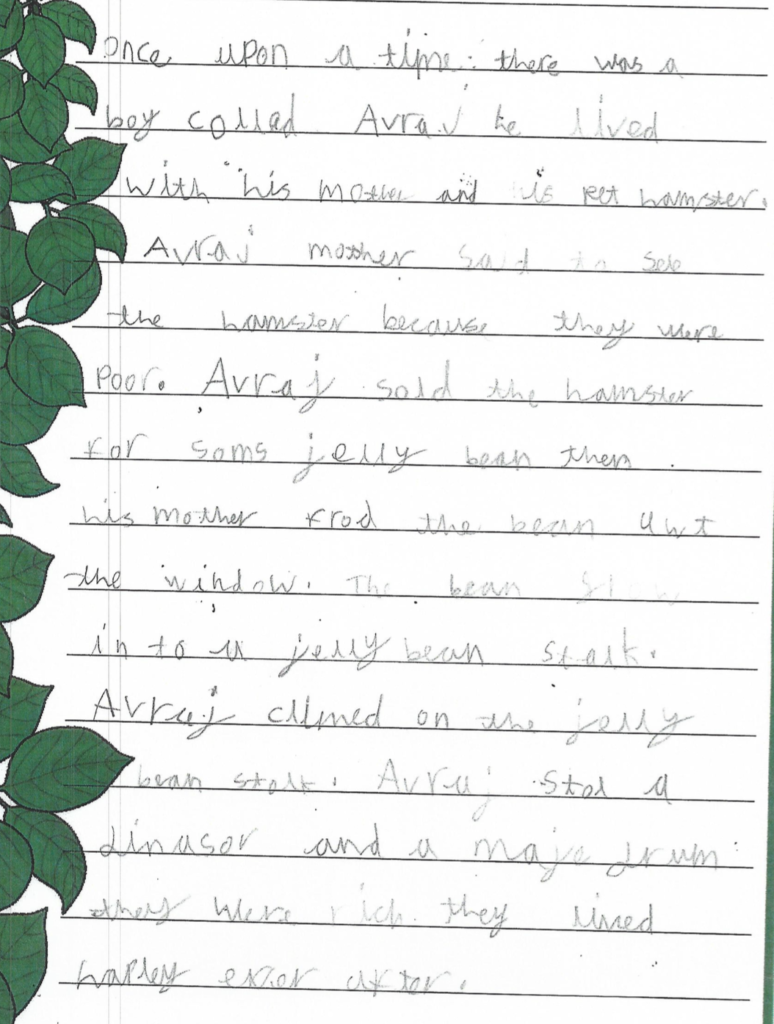 once upon a time. there was a
boy collad Avraj he lived
with his mother and his pet hamster.
Avraj mother said to sele
the hamster because they were
Poor. Avraj sold the hamster
for soms jelly bean then.
his mother frod the bean awt
the window. The bean
in to a jelly bean stalk.
Avraj climed on the jelly
bean stalk. Avraj stol a
dinasor and a maje drum
they were rich. they lived
hapley ever after.